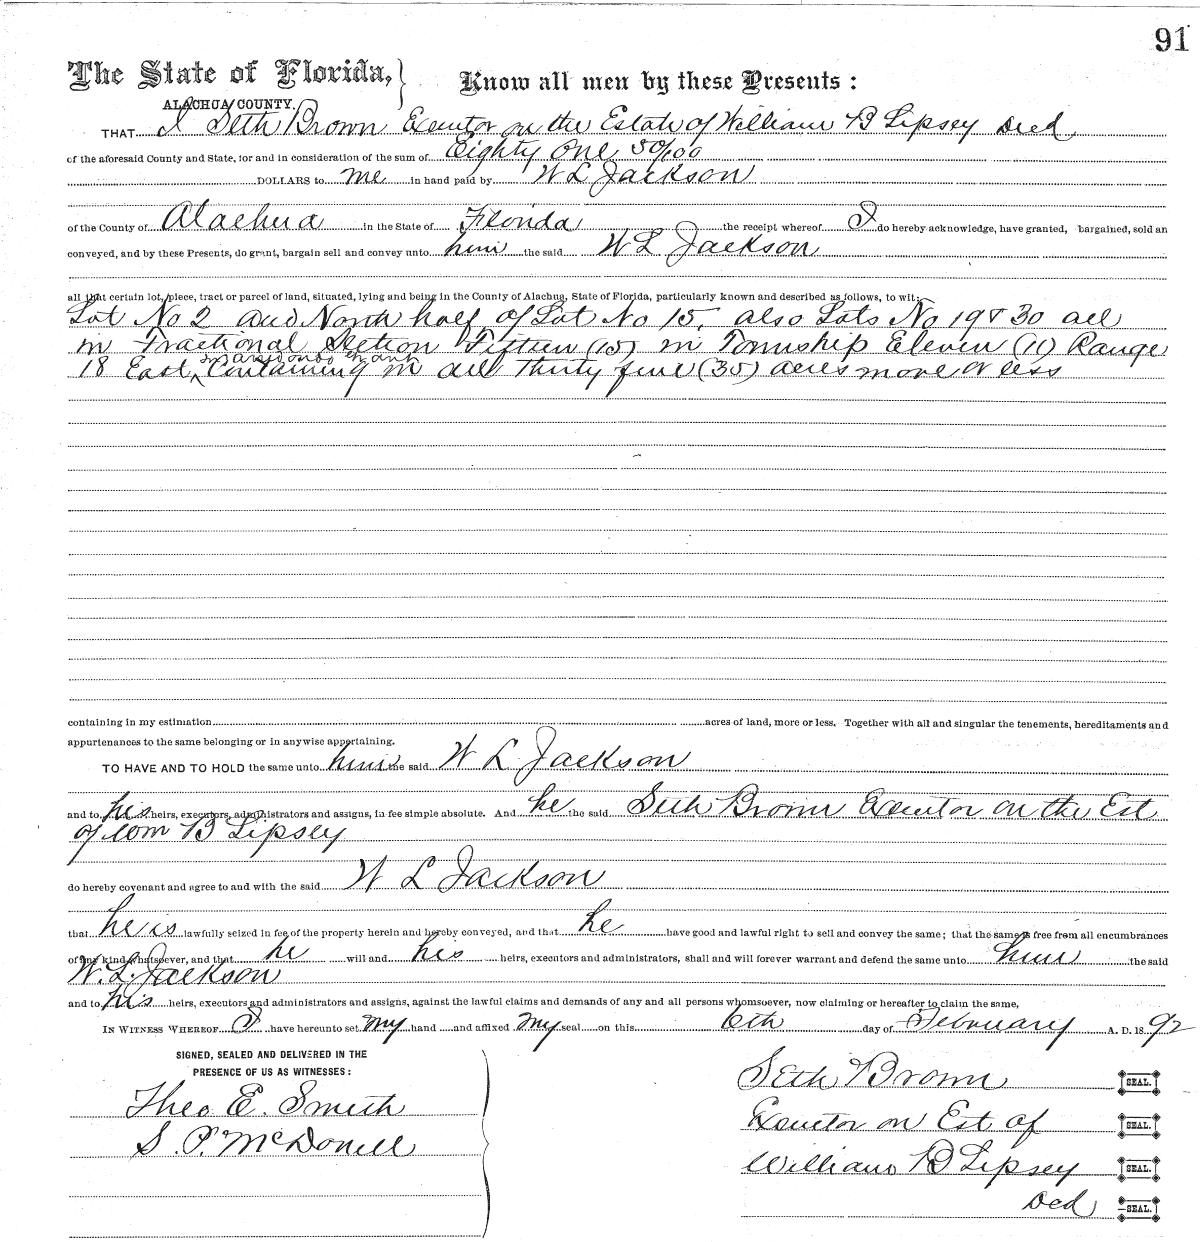 91
The State of Florida, Know all men by these Presents:
ALACHUA COUNTY.
THAT I Seth Brown Executor on the Estate of William B Lipsey Decd
of the aforesaid County and State, for and in consideration of the sum of Eighty One 50/100
DOLLARS to me in hand paid by W L Jackson
of the County of Alachua in the State of Florida the receipt whereof I do hereby acknowledge, have granted, bargained, sold an
conveyed, and by these Presents, do grant, bargain sell and convey unto him the said W L Jackson
all that certain lot, piece, tract or parcel of land, situated, lying and being in the County of Alachua, State of Florida, particularly known and described as follows, to wit:
Lot No 2 and North half of Lot No 15, also Lots No 19 & 30 all
in Fractional Section Fifteen (15) in Township Eleven (11) Range
18 East, containing in all thirty five (35) acres more or less
containing in my estimation acres of land, more or less. Together with all and singular the tenements, hereditaments and
appurtenances to the same belonging or in anywise appertaining.
TO HAVE AND TO HOLD the same unto him the said W L Jackson
and to his heirs, executors, administrators and assigns, in fee simple absolute. And he the said Seth Brown Executor on the Est
of Wm B Lipsey
do hereby covenant and agree to and with the said W L Jackson
that he is lawfully seized in fee of the property herein and hereby conveyed, and that he have good and lawful right to sell and convey the same; that the same is free from all encumbrances
of any kind whatsoever, and that he will and his heirs, executors and administrators, shall and will forever warrant and defend the same unto him the said
W. L. Jackson
and to his heirs, executors and administrators and assigns, against the lawful claims and demands of any and all persons whomsoever, now claiming or hereafter to claim the same,
IN WITNESS WHEREOF I have hereunto set my hand and affixed my seal on this 6th day of February A. D. 1892
SIGNED, SEALED AND DELIVERED IN THE
PRESENCE OF US AS WITNESSES:
Seth Brown SEAL.
Theo E. Smith
Executor on Est of SEAL.
S. P. McDonell
William B Lipsey SEAL.
Decd SEAL.